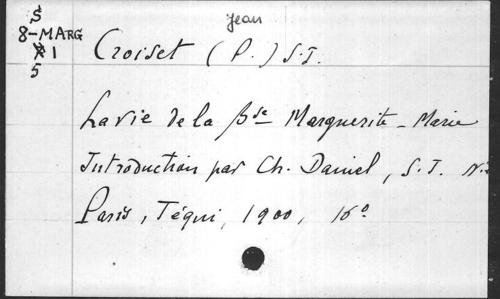 Jean
S
8-MARG
X 1
5
Croiset (P.) S.J.
La vie de la Bse Marguerite-Marie
Introduction par Ch. Daniel, S.J.
Paris, Téqui, 1900, 16º